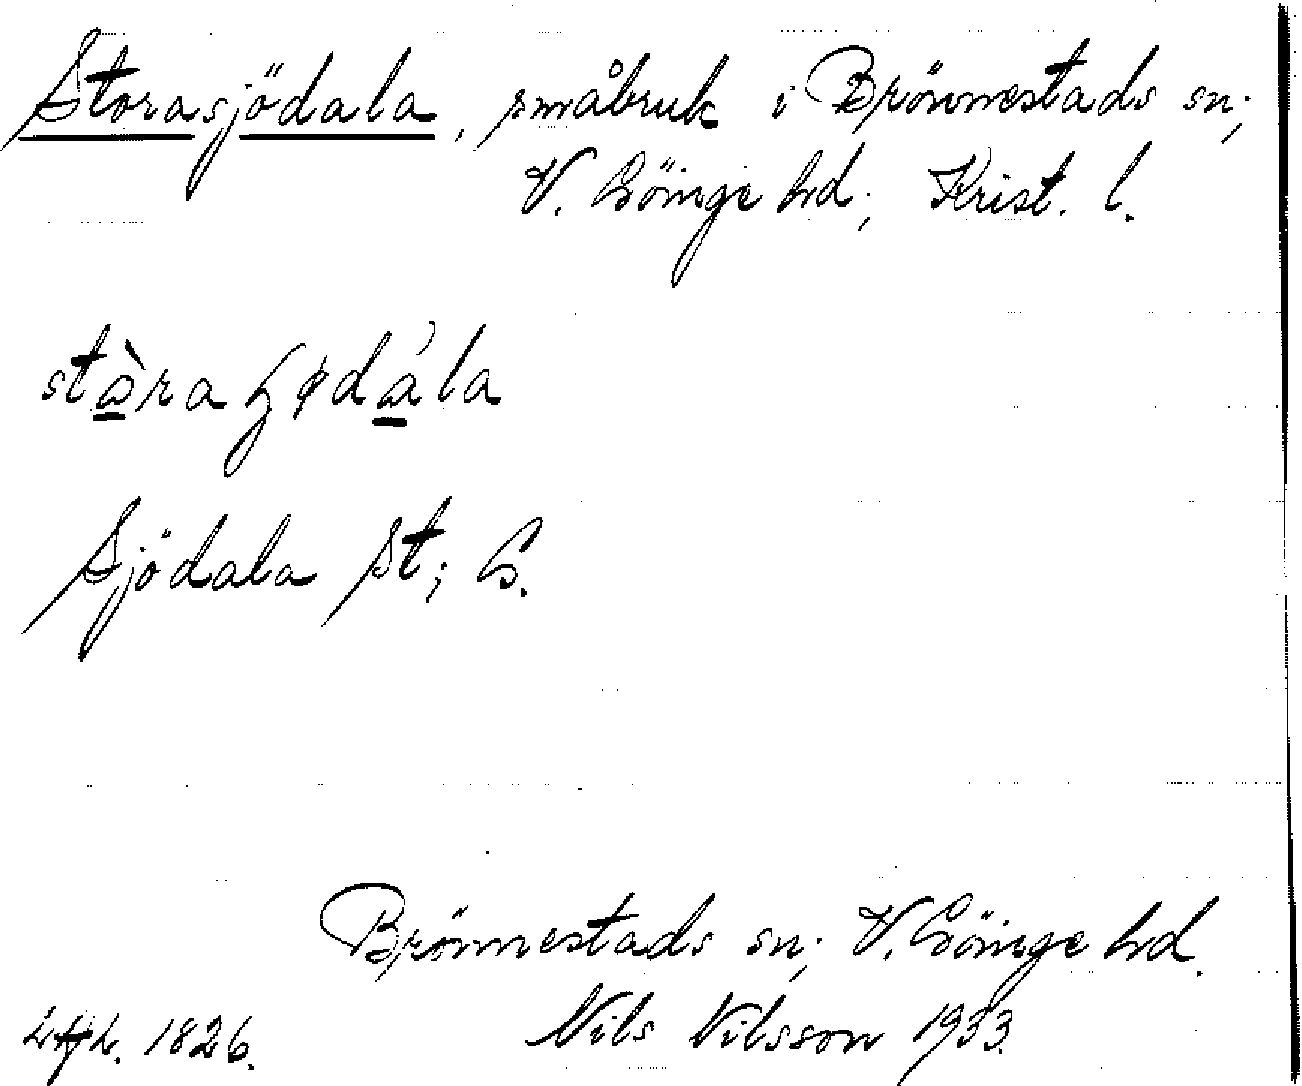 Storasjödala, småbruk i Brönnestads sn;
V. Göinge hd; Krist. l.
Sjödala St; G.
Brönnestads sn; V. Göinge hd.
1826. Nils Nilsson 1933.